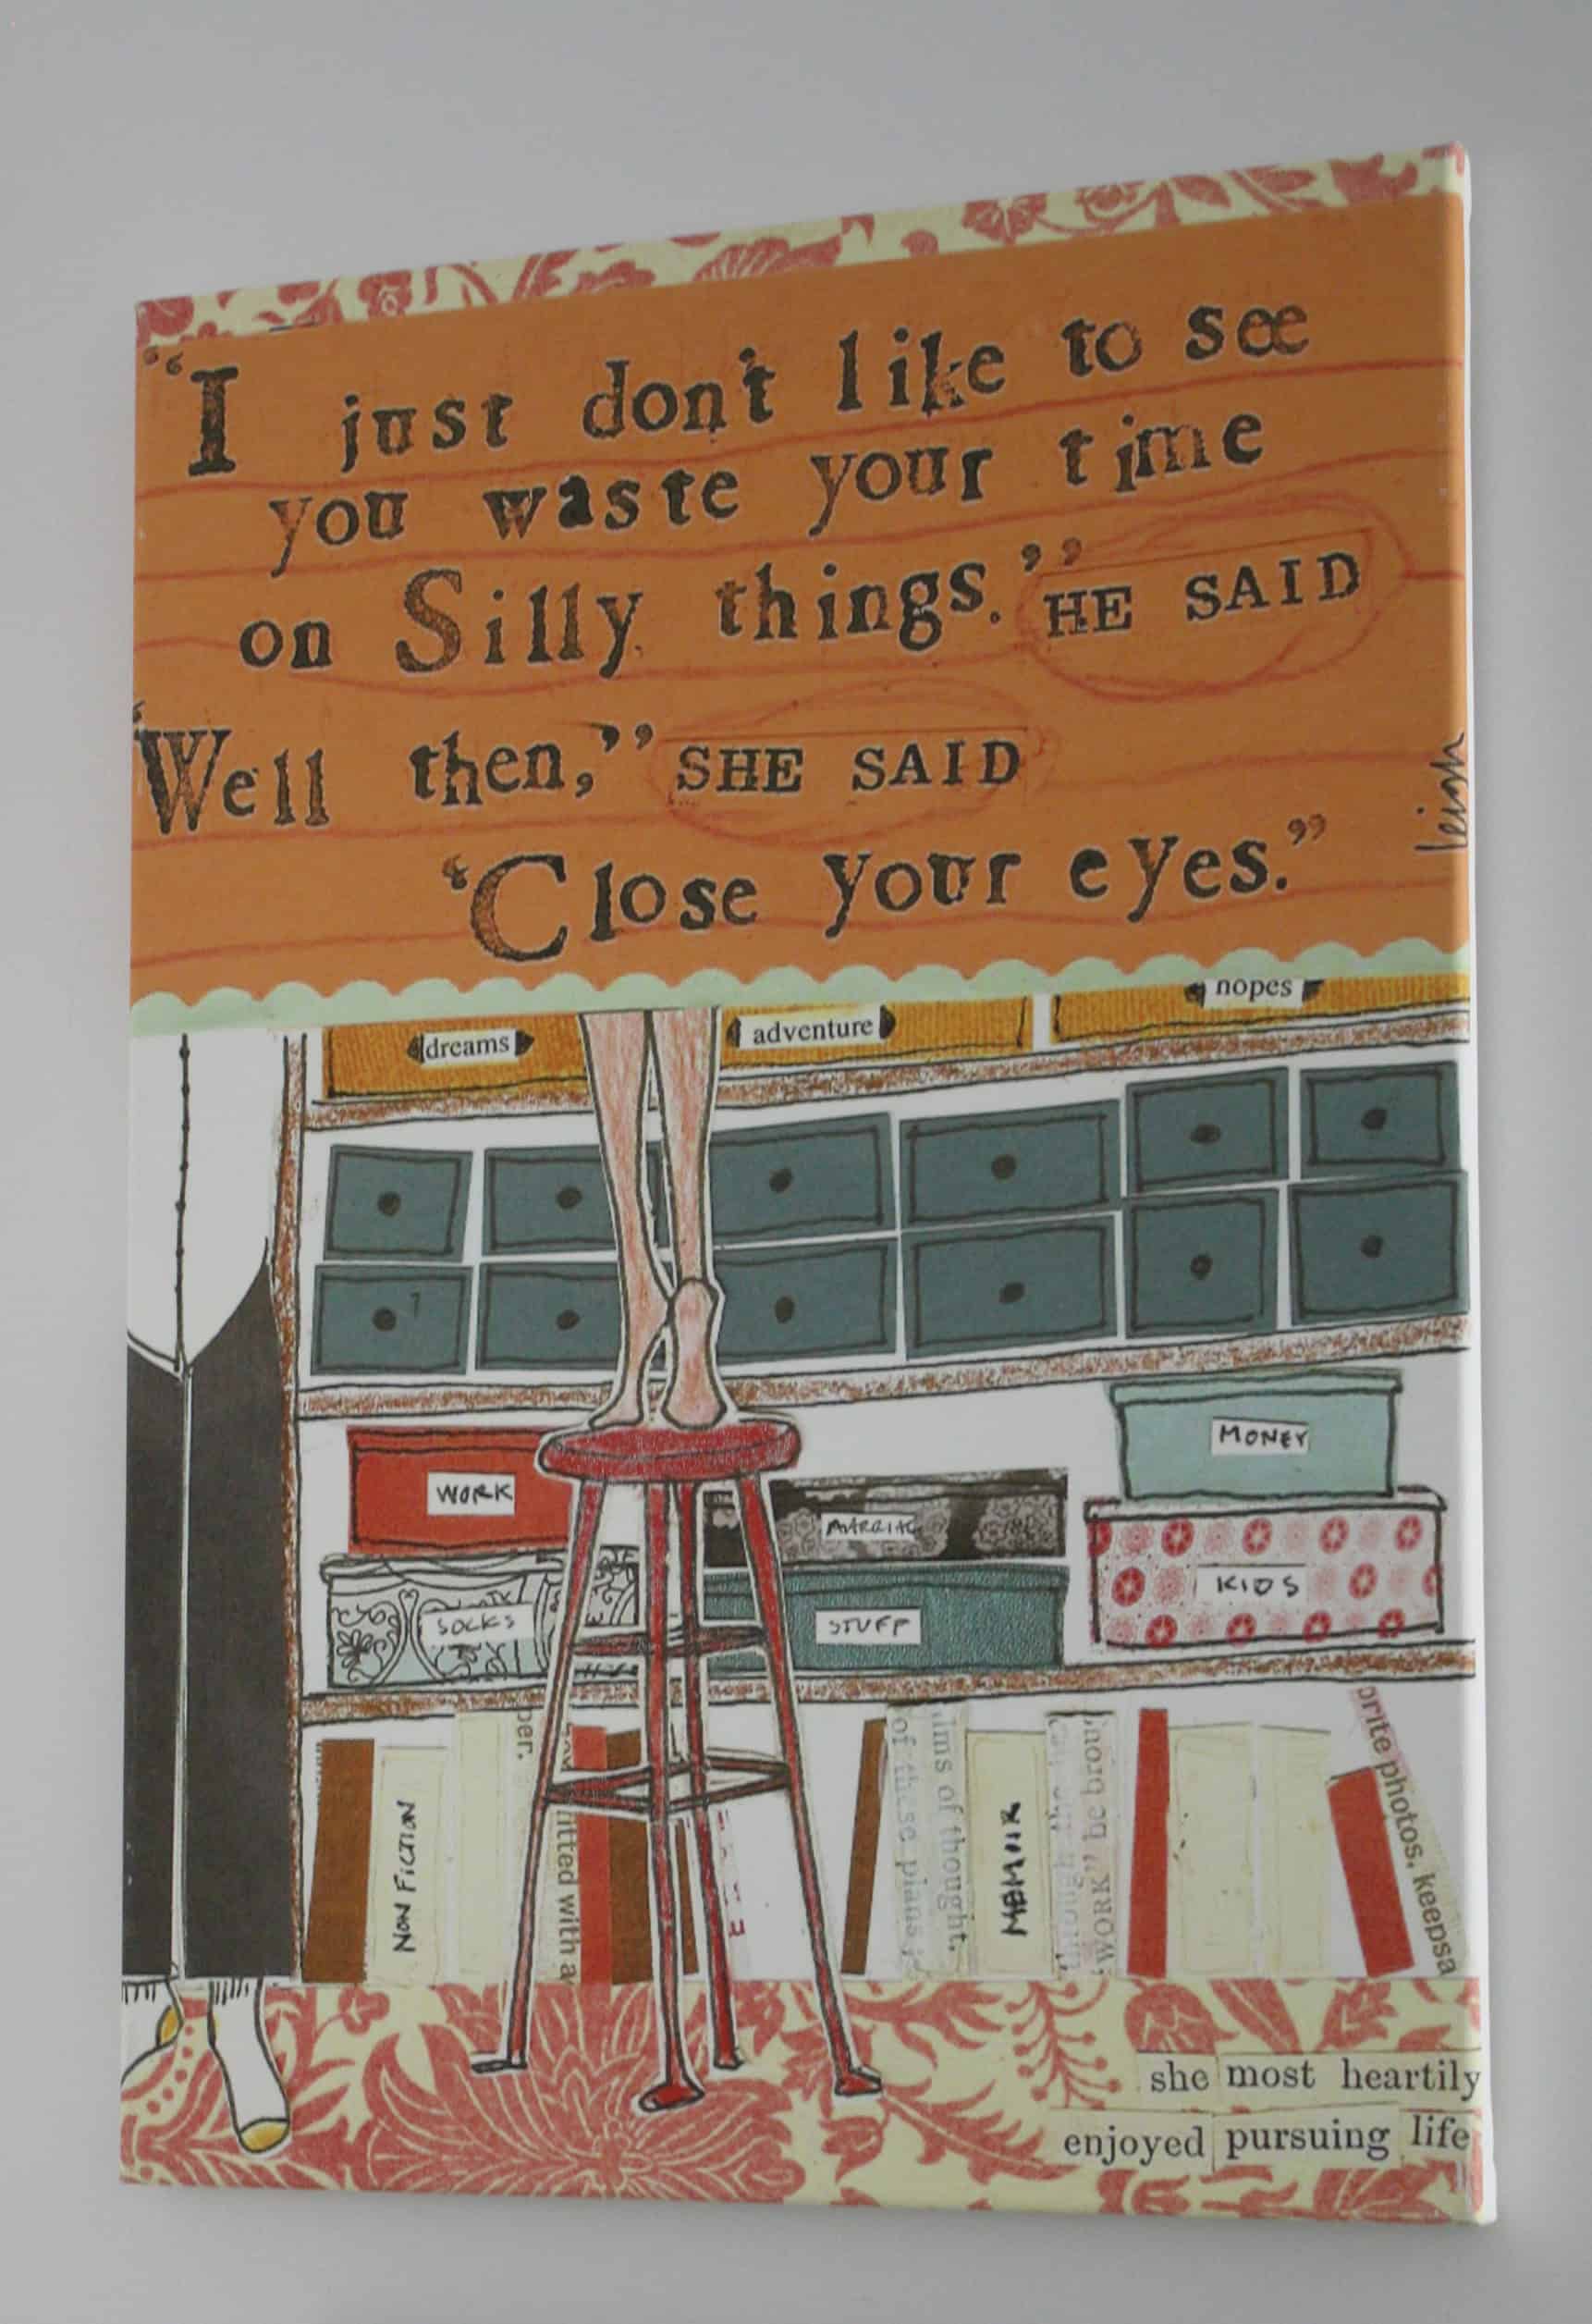 “I just don't like to see
you waste your time
on Silly things.” HE SAID
“Well then,” SHE SAID
“Close your eyes.”
leigh
dreams
adventure
hopes
WORK
MONEY
SOCKS
STUFF
KIDS
NON FICTION
itted with a
of these plans
ims of thought.
MEMOIR
WORK" he brou
orite photos, keepsa
she most heartily
enjoyed pursuing life